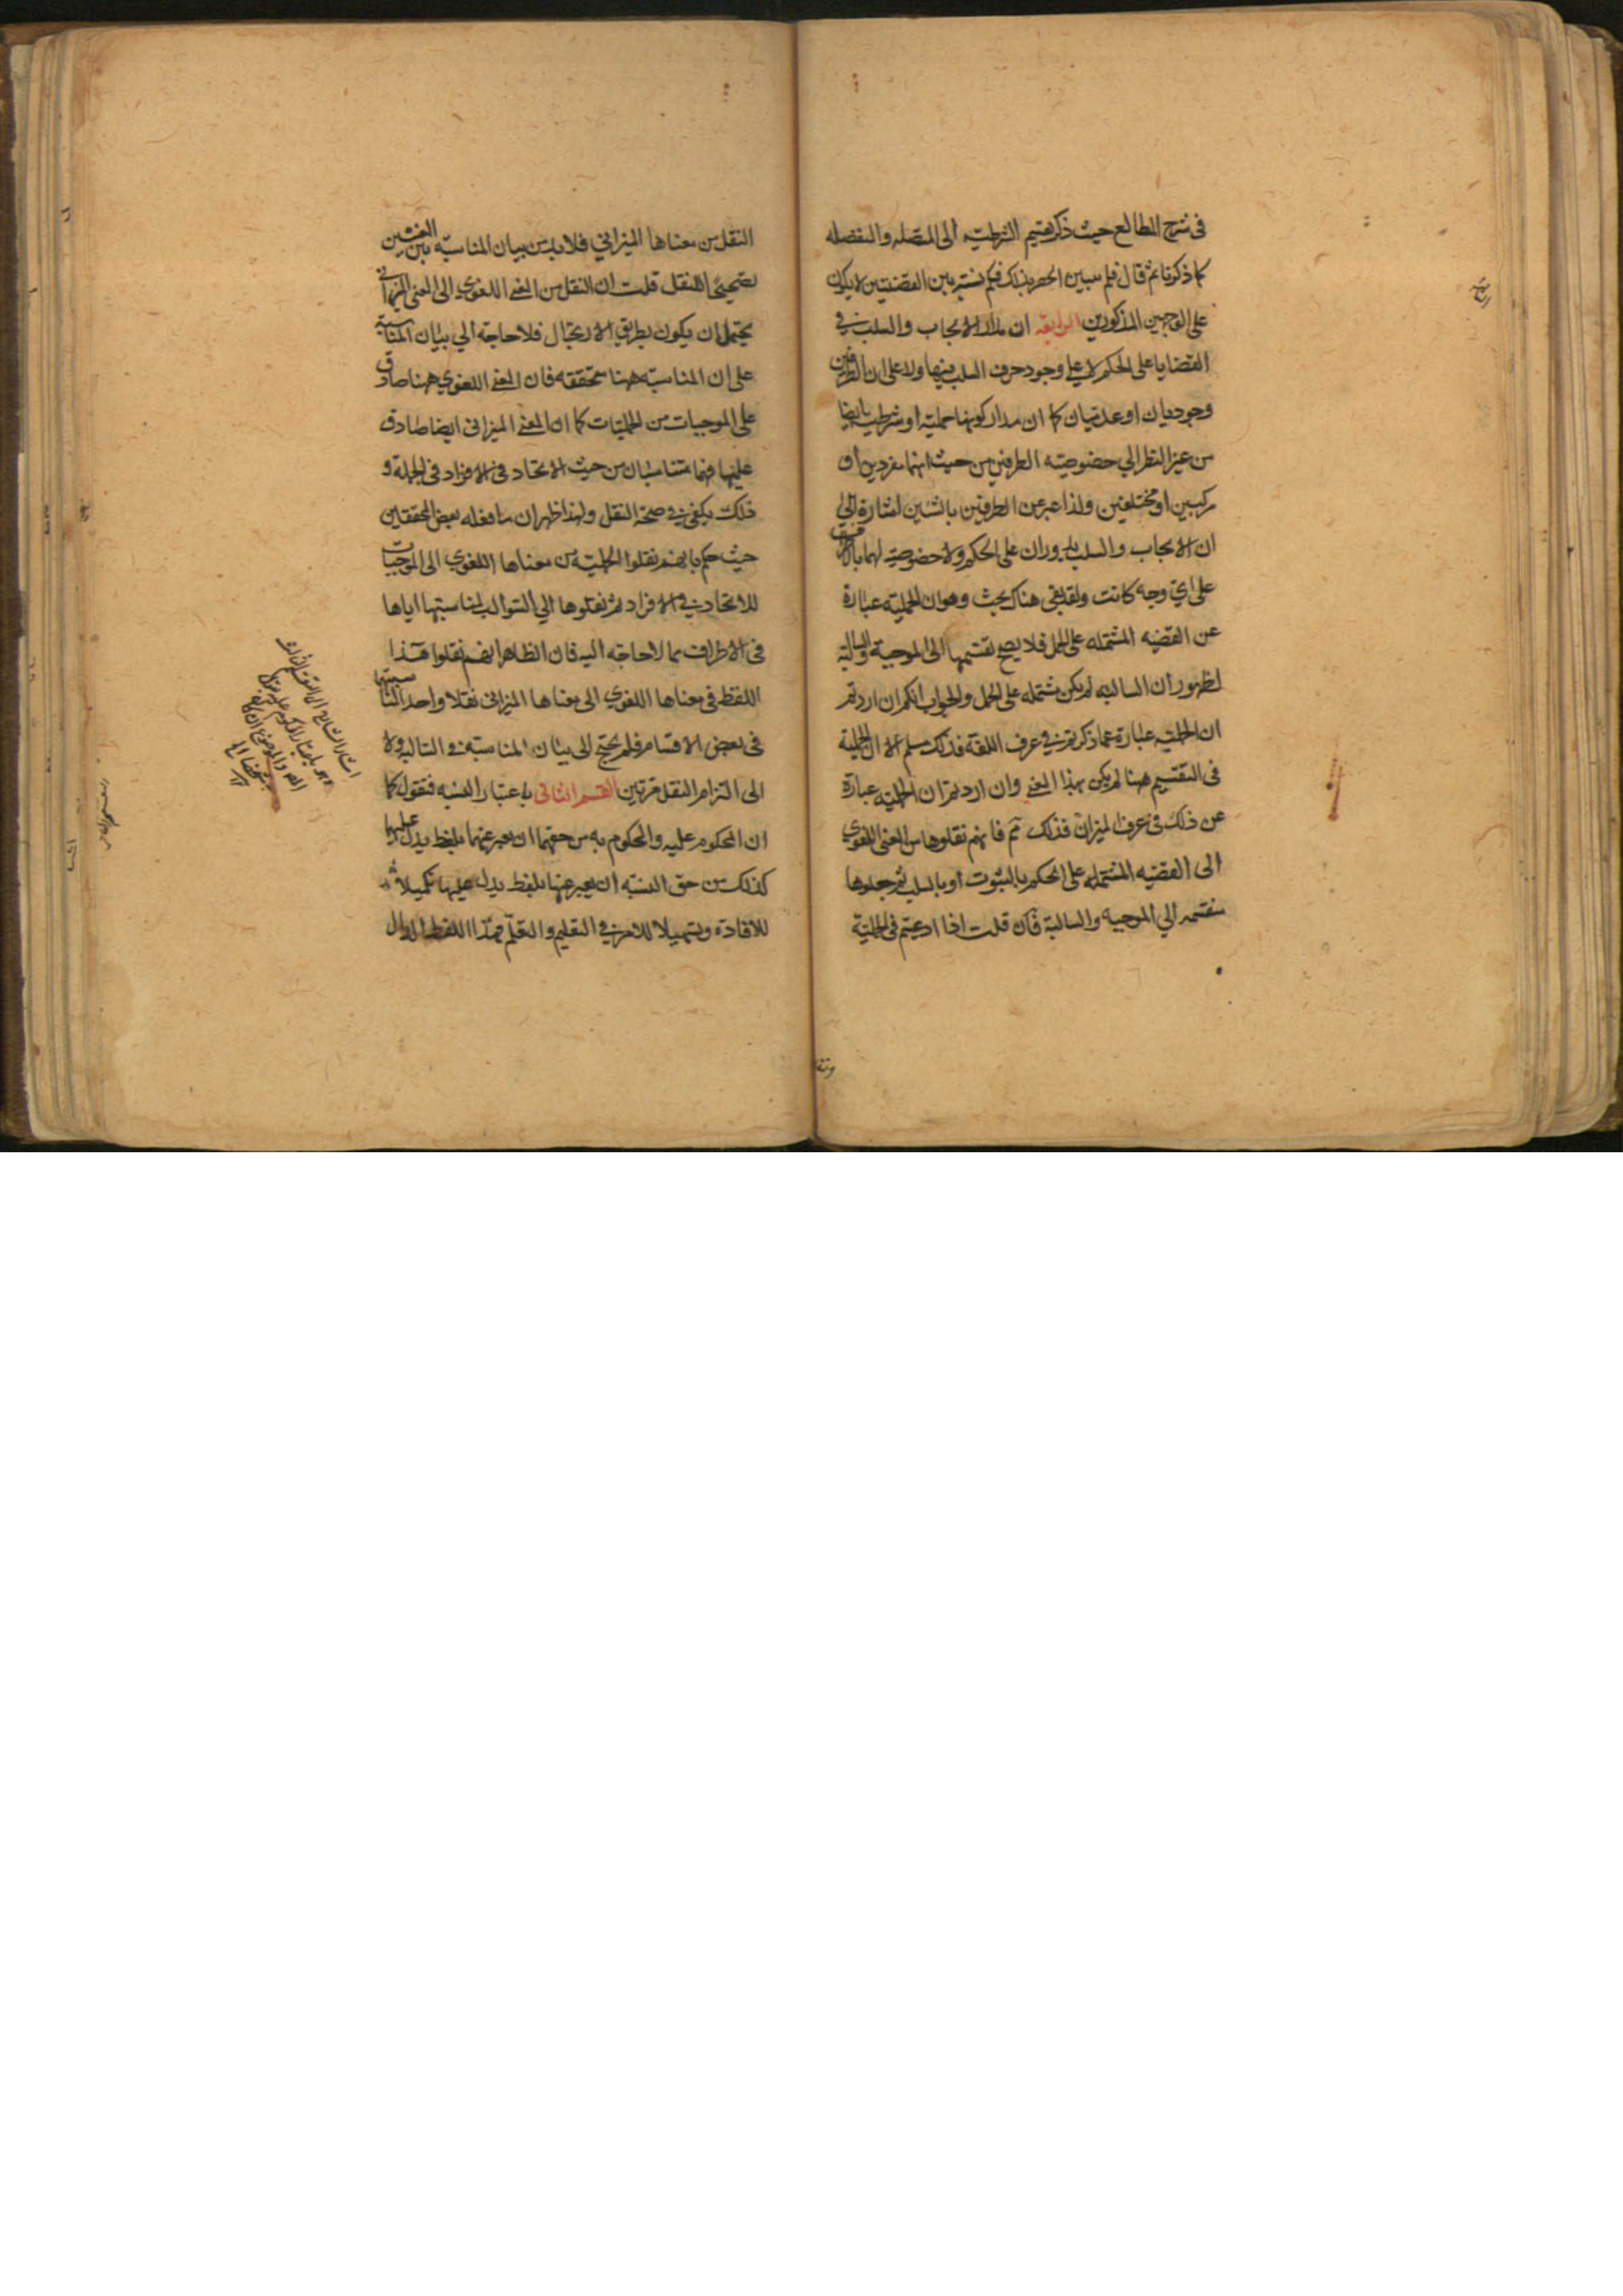 في شرح المطالع حيث ذكر تقسيم الشرطية الى المتصلة والمنفصلة
كما ذكرنا ثم قال فلم يتبين الحصر بذلك فكم نسبة بين القضيتين لا يكون
على الوجهين المذكورين الرابعة ان مدار الايجاب والسلب في
القضايا على الحكم لا على وجود حرف السلب فيها ولا على ان الطرفين
وجوديان او عدميان كما ان مدار كونها حملية او شرطية ايضا
من غير النظر الي خصوصية الطرفين من حيث انهما مفردين او
مركبين او مختلفين ولذا عبر عن الطرفين بالشيئين اشارة الي
ان الايجاب والسلب يدوران على الحكم ولا خصوصية لهما
على اي وجه كانت ولقد بقي هناك بحث وهو ان الحملية عبارة
عن القضية المشتملة على الحمل فلا يصح تقسيمها الى الموجبة والسالبة
لظهور ان السالبة لم يكن مشتملة على الحمل والجواب انكم ان اردتم
ان الحملية عبارة عما ذكرتم في عرف اللغة فذلك مسلم الا ان الحملية
في التقسيم ههنا لم يكن بهذا المعنى وان اردتم ان الحملية عبارة
عن ذلك في عرف الميزان فذلك ثم فانهم نقلوها من المعنى اللغوي
الى القضية المشتملة على الحكم بالثبوت او بالسلب ثم جعلوها
منقسمة الي الموجبة والسالبة فان قلت اذا ادعيتم في الحملية
النقل من معناها الميزاني فلا بد من بيان المناسبة بين المعنيين
تصحيحا للنقل قلت ان النقل من المعنى اللغوي الى المعنى الميزاني
يحتمل ان يكون بطريق الارتجال فلا حاجة الي بيان المناسبة
على ان المناسبة ههنا متحققة فان المعنى اللغوي ههنا صادق
على الموجبات من الحمليات كما ان المعنى الميزاني ايضا صادق
عليها فهما متناسبان من حيث الاتحاد في الافراد في الجملة و
ذلك يكفي في صحة النقل ولهذا ظهر ان ما فعله بعض المحققين
حيث حكم بانهم نقلوا الحملية من معناها اللغوي الى الموجبات
للاتحاد في الافراد ثم نقلوها الي السوالب لمناسبتها اياها
في الاطراف مما لا حاجة اليه فان الظاهر انهم نقلوا هذا
اللفظ في معناها اللغوي الى معناها الميزاني نقلا واحدا لمناسبتها
في بعض الاقسام فلم يحتج الى بيان المناسبة في السالبة ولا
الى التزام النقل مرتين القسم الثاني باعتبار النسبة فنقول كما
ان المحكوم عليه والمحكوم به من حقهما ان يعبر عنهما بلفظ يدل عليهما
كذلك من حق النسبة ان يعبر عنها بلفظ يدل عليها تكميلا
للافادة وتسهيلا للامر في التعليم والتعلم فهذا اللفظ الدال